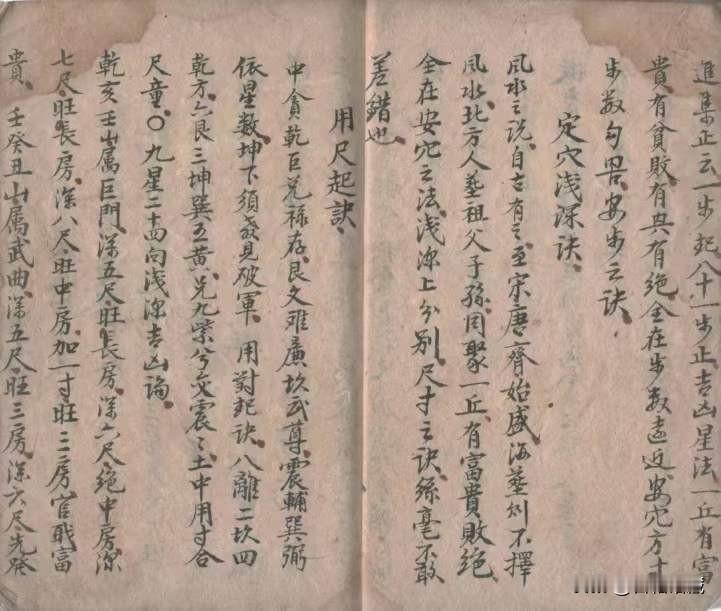 進集正云一步起八十一步止吉凶星法一丘有富
貴有貧敗有興有絕全在步数遠近安穴方十
步数句畧安步之訣
定穴浅深訣
風水之說自古有之至宋唐齊始盛海塟则不擇
風水北方人塟祖父子孫同聚一丘有富貴敗絕
全在安穴之法浅深上分别尺寸之訣絲毫不敢
差錯也
用尺起訣
中貪乾巨兑禄存艮文难廉坎武尊震輔巽弼
依星数坤下須發見破軍用對起訣八離二坎四
乾方六艮三坤巽五黄兑九紫兮交震三土中用寸合
尺童〇九星二十四向浅深吉凶論
乾亥壬山属巨門深五尺旺長房深六尺絕中房深
七尺旺長房深八尺旺中房加一寸旺三二房官戢富
貴壬癸丑山属武曲深五尺旺三房深六尺先発